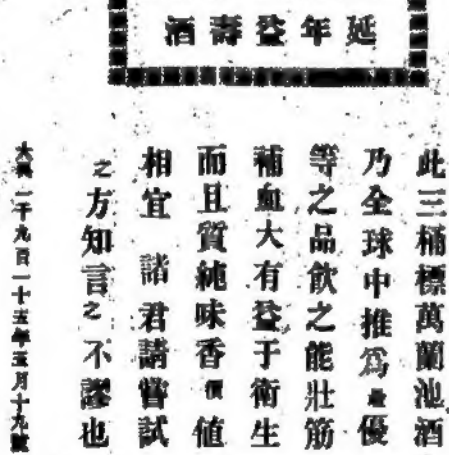 延年益壽酒
此三桶標萬蘭池酒
乃全球中推爲最優
等之品飲之能壯筋
補血大有益于衛生
而且質純味香價値
相宜 諸君請嘗試
之方知言之不謬也
一千九百一十五年五月十九號